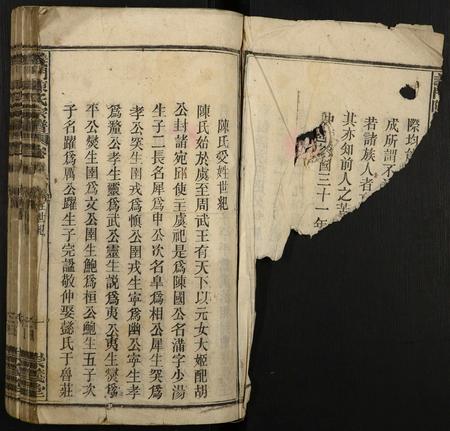 際均
成所謂不
若諸族人者
其亦知前人之苦
國三十一年
陳氏受姓世紀
陳氏始於虞至周武王有天下以元女大姬配胡
公封諸宛邱使主虞祀是爲陳國公名滿字少湯
生子二長名犀爲申公次名臯爲相公犀生突爲
孝公突生圉戎爲愼公圉戎生寧爲幽公寧生孝
爲釐公孝生靈爲武公靈生說爲夷公夷生爕爲
平公爕生圉爲文公圉生鮑爲桓公鮑生五子次
子名躍爲厲公躍生子完諡敬仲娶懿氏于魯莊